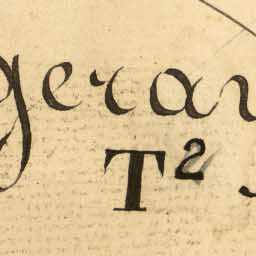 gerar
T²